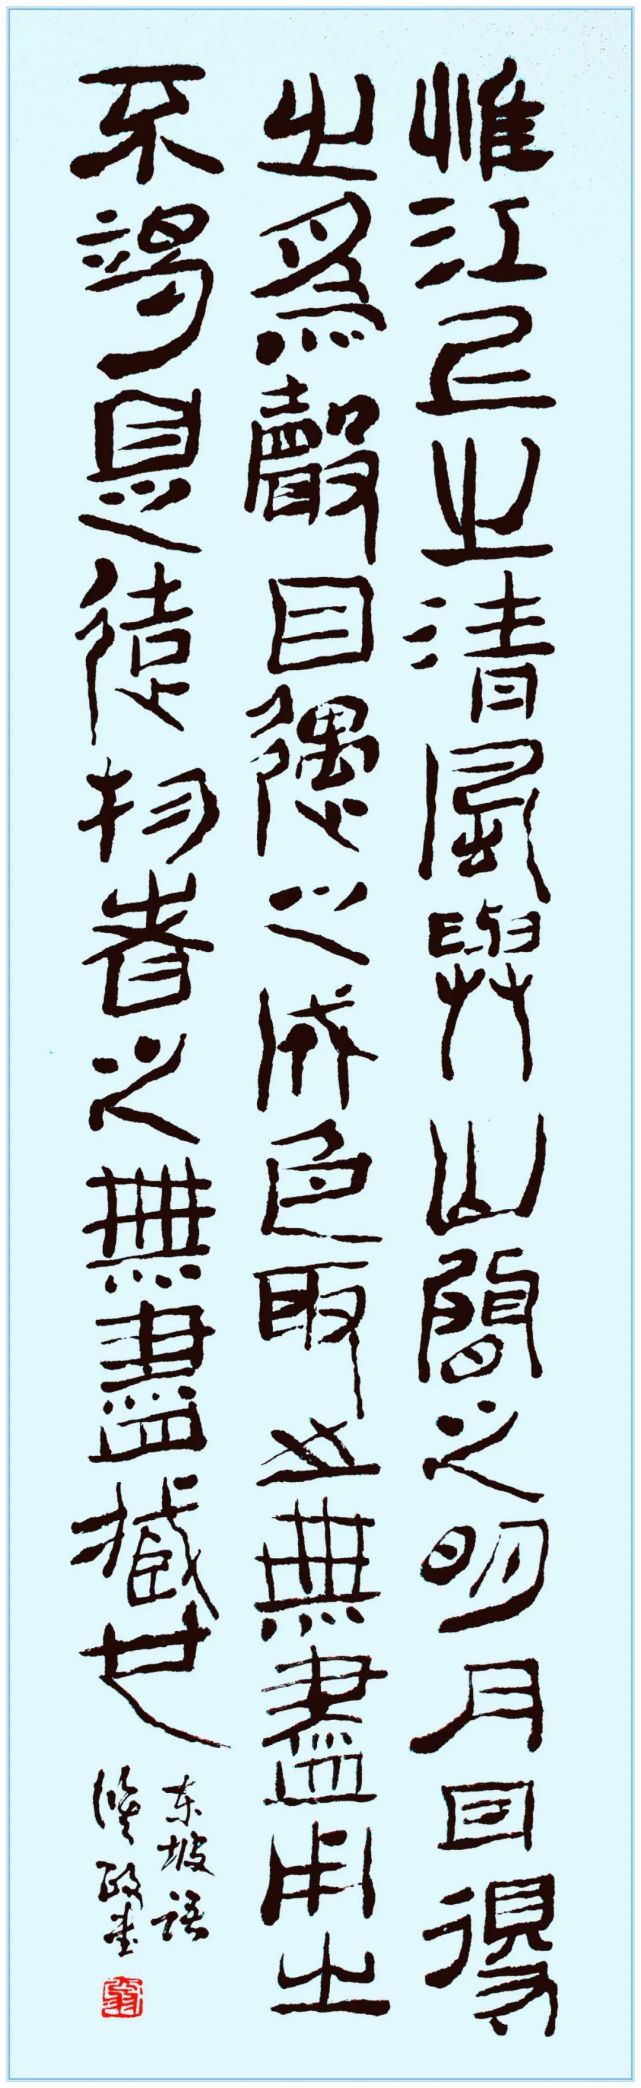 惟江上之清風與山間之明月耳得
之爲聲目遇之成色取之無盡用之
不竭是造物者之無盡藏也
东坡语
政书